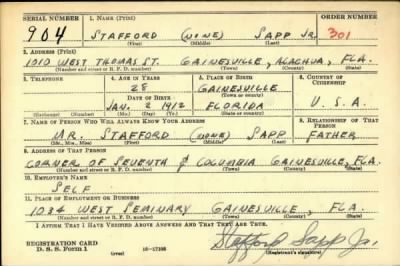 SERIAL NUMBER 1. NAME (Print) ORDER NUMBER
904 STAFFORD (NONE) SAPP JR. 301
(First) (Middle) (Last)
2. ADDRESS (Print)
1010 WEST THOMAS ST. GAINESVILLE, ALACHUA, FLA.
(Number and street or R. F. D. number) (Town) (County) (State)
3. TELEPHONE 4. AGE IN YEARS 5. PLACE OF BIRTH 6. COUNTRY OF CITIZENSHIP
28 GAINESVILLE
DATE OF BIRTH (Town or county)
JAN. 2 1912 FLORIDA U. S. A.
(Exchange) (Number) (Mo.) (Day) (Yr.) (State or country)
7. NAME OF PERSON WHO WILL ALWAYS KNOW YOUR ADDRESS 8. RELATIONSHIP OF THAT PERSON
MR. STAFFORD (NONE) SAPP FATHER
(Mr., Mrs., Miss) (First) (Middle) (Last)
9. ADDRESS OF THAT PERSON
CORNER OF SEVENTH & COLUMBIA GAINESVILLE, FLA.
(Number and street or R. F. D. number) (Town) (County) (State)
10. EMPLOYER'S NAME
SELF
11. PLACE OF EMPLOYMENT OR BUSINESS
1034 WEST SEMINARY GAINESVILLE, FLA.
(Number and street or R. F. D. number) (Town) (County) (State)
I AFFIRM THAT I HAVE VERIFIED ABOVE ANSWERS AND THAT THEY ARE TRUE.
REGISTRATION CARD
D. S. S. Form 1 (over) 16-17105 Stafford Sapp Jr.
(Registrant's signature)